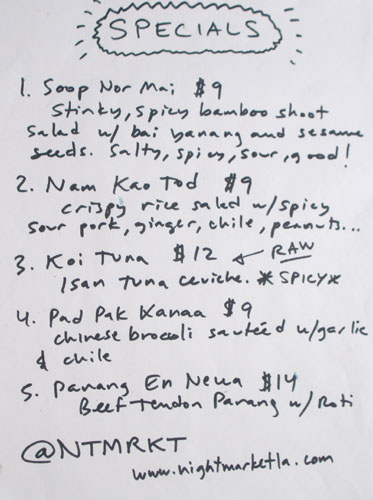 SPECIALS
1. Soop Nor Mai $9
Stinky, spicy bamboo shoot
salad w/ bai yanang and sesame
seeds. Salty, spicy, sour, good!
2. Nam Kao Tod $9
crispy rice salad w/spicy
sour pork, ginger, chile, peanuts...
3. Koi Tuna $12 ← RAW
Isan Tuna ceviche. *SPICY*
4. Pad Pak Kanaa $9
chinese broccoli sauteéd w/garlic
& chile
5. Panang En Neua $14
Beef Tendon Panang w/ Roti
@NTMRKT
www.nightmarketla.com